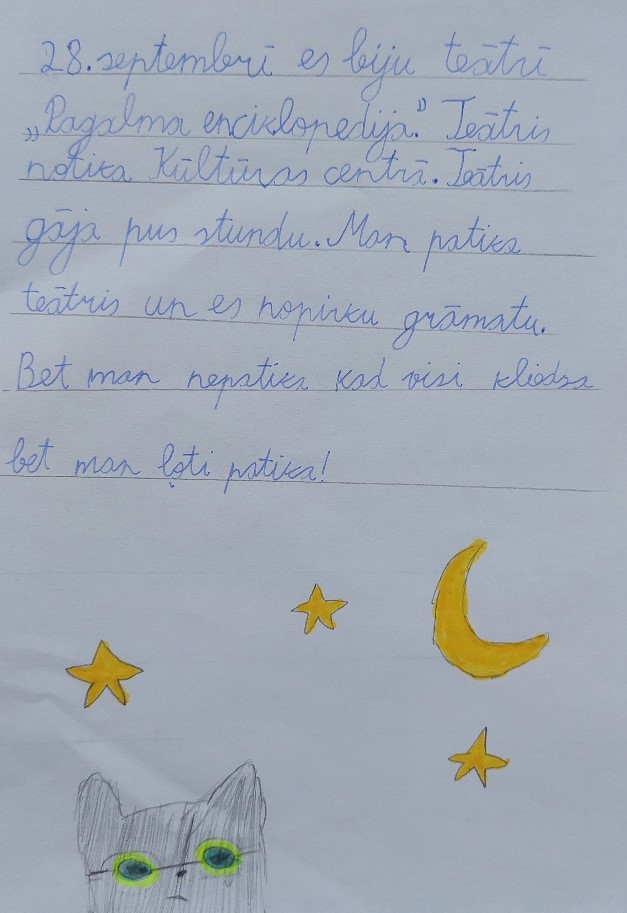 28. septembrī es biju teātrī
„Pagalma enciklopēdija." Teātris
notika Kūltūras centrā. Teātris
gāja pus stundu. Man patika
teātris un es nopirku grāmatu.
Bet man nepatika kad visi kliedza
bet man ļoti patika!